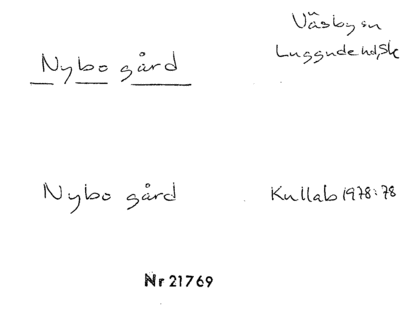 Väsby sn
Nybo gård
Luggude hd, Sk
Nybo gård
Kullab 1978:78
Nr 21769